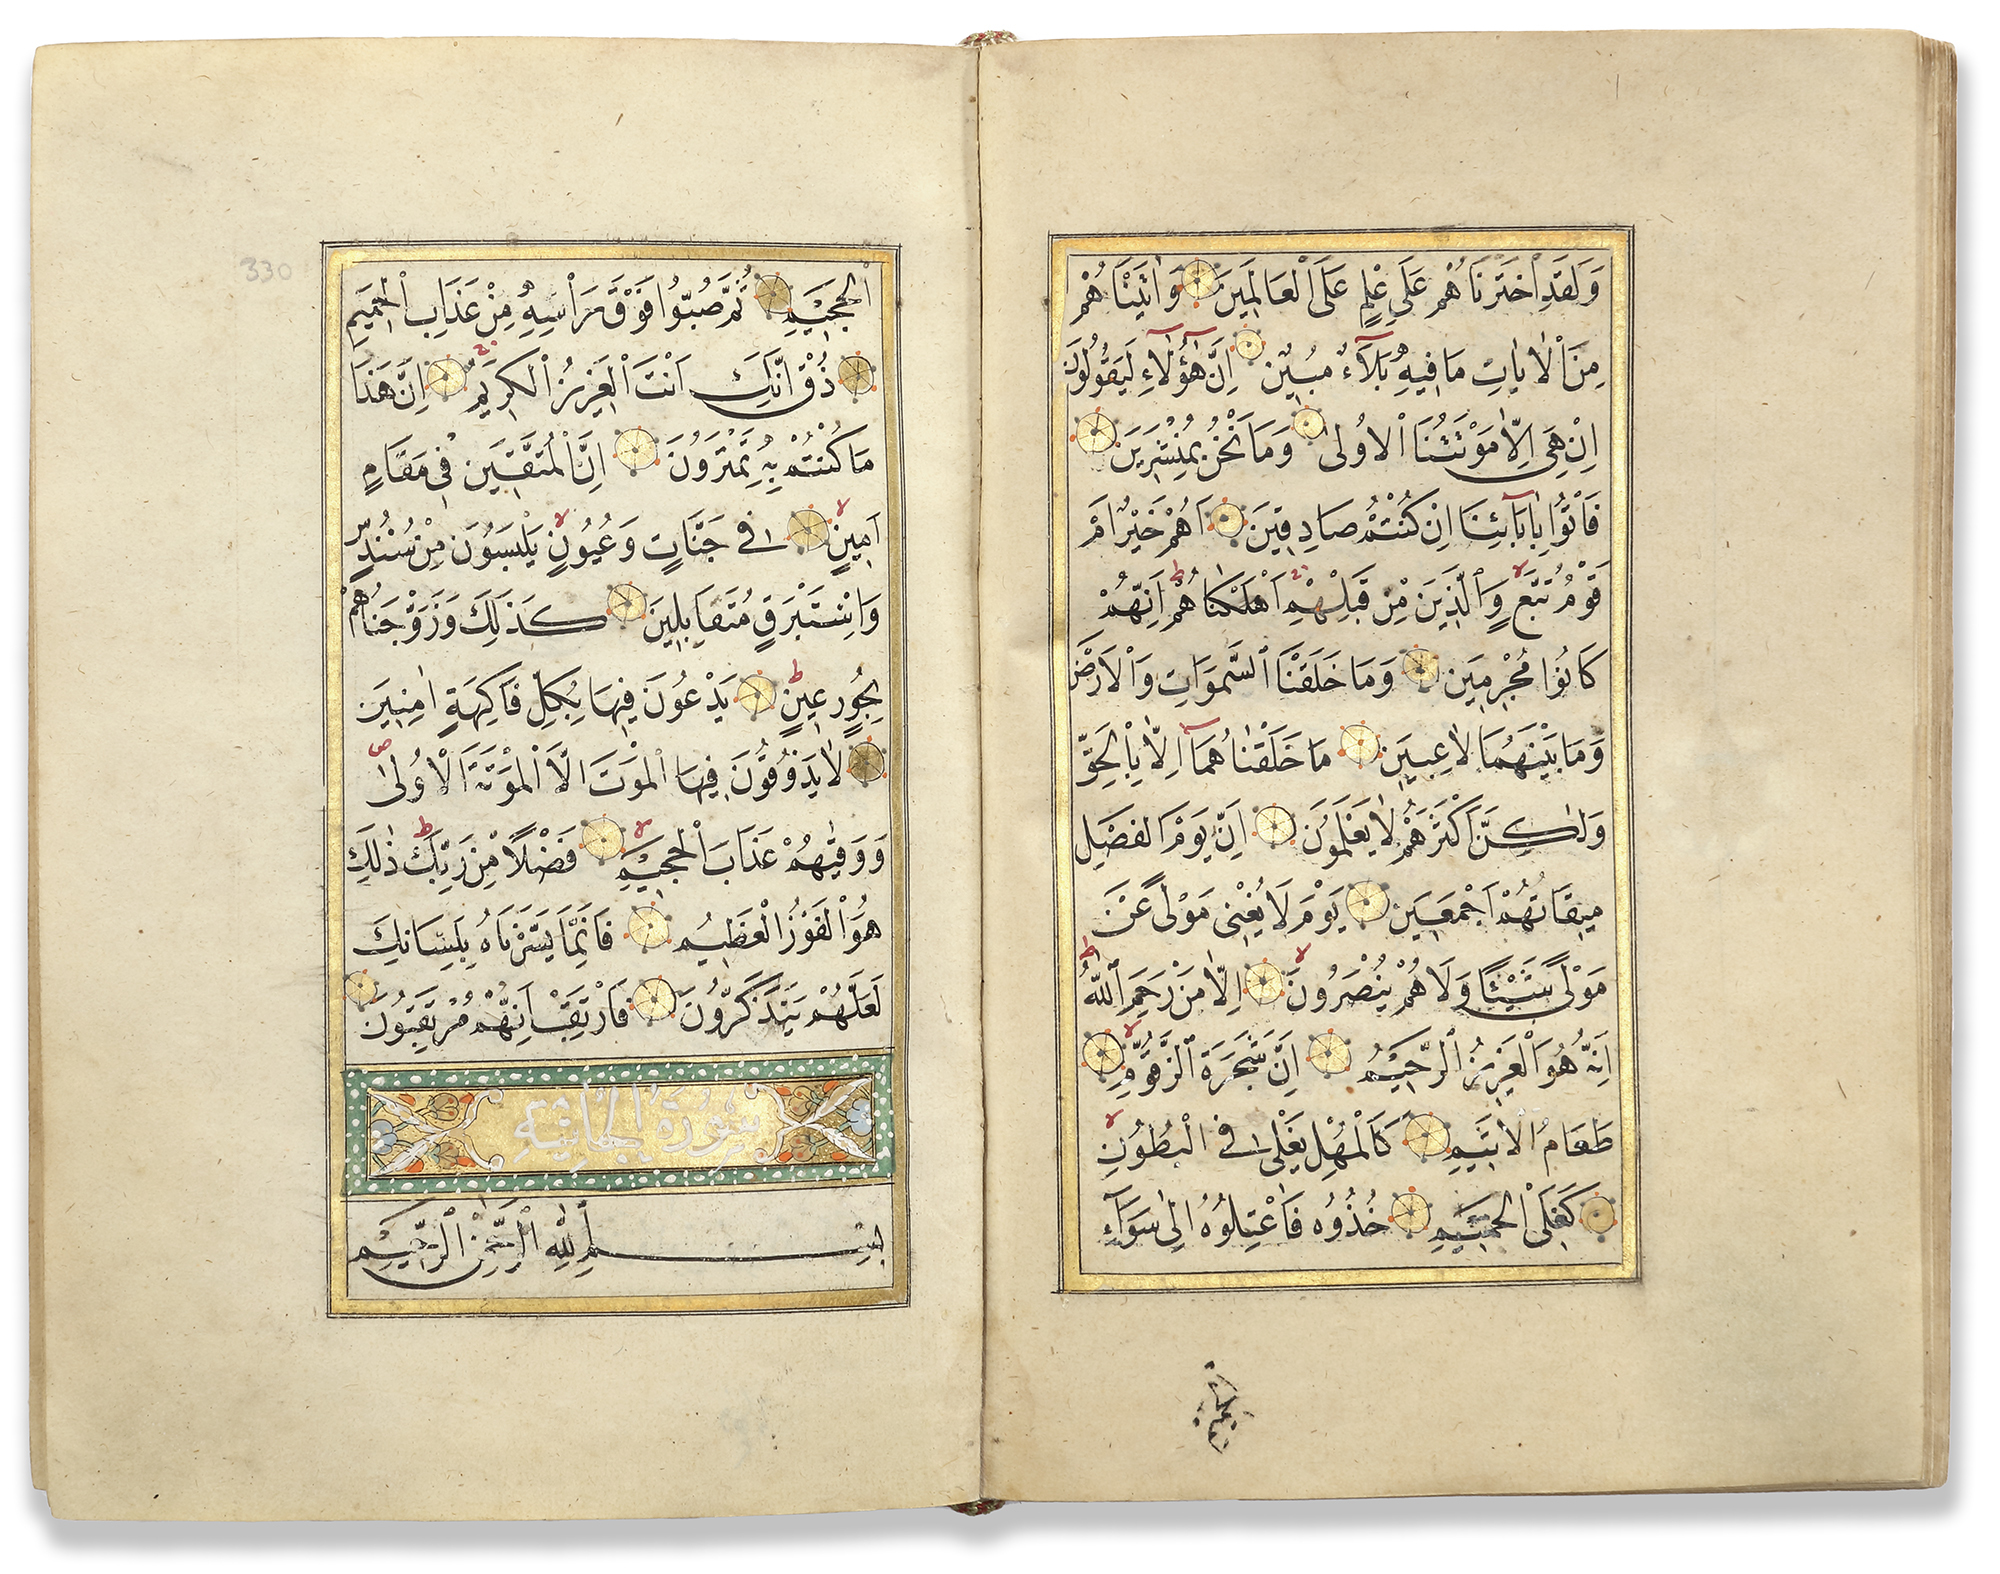 وَلَقَدِ اخْتَرْنَاهُمْ عَلَى عِلْمٍ عَلَى الْعَالَمِينَ وَاٰتَيْنَاهُمْ
مِنَ الْاٰيَاتِ مَا فِيهِ بَلَآٰءٌ مُبِينٌ اِنَّ هٰٓؤُلَآٰءِ لَيَقُولُونَ
اِنْ هِيَ اِلَّا مَوْتَتُنَا الْاُولٰى وَمَا نَحْنُ بِمُنْشَرِينَ
فَاْتُوا بِاٰبَآئِنَا اِنْ كُنْتُمْ صَادِقِينَ اَهُمْ خَيْرٌ اَمْ
قَوْمُ تُبَّعٍ وَالَّذِينَ مِنْ قَبْلِهِمْ اَهْلَكْنَاهُمْ اِنَّهُمْ
كَانُوا مُجْرِمِينَ وَمَا خَلَقْنَا السَّمٰوَاتِ وَالْاَرْضَ
وَمَا بَيْنَهُمَا لَاعِبِينَ مَا خَلَقْنَاهُمَآ اِلَّا بِالْحَقِّ
وَلٰكِنَّ اَكْثَرَهُمْ لَا يَعْلَمُونَ اِنَّ يَوْمَ الْفَصْلِ
مِيقَاتُهُمْ اَجْمَعِينَ يَوْمَ لَا يُغْنِي مَوْلًى عَنْ
مَوْلًى شَيْئًا وَلَا هُمْ يُنْصَرُونَ اِلَّا مَنْ رَحِمَ اللّٰهُ
اِنَّهُ هُوَ الْعَزِيزُ الرَّحِيمُ اِنَّ شَجَرَةَ الزَّقُّومِ
طَعَامُ الْاَثِيمِ كَالْمُهْلِ يَغْلِي فِي الْبُطُونِ
كَغَلْيِ الْحَمِيمِ خُذُوهُ فَاعْتِلُوهُ اِلٰى سَوَآءِ
330
الْجَحِيمِ ثُمَّ صُبُّوا فَوْقَ رَاْسِهِ مِنْ عَذَابِ الْحَمِيمِ
ذُقْ اِنَّكَ اَنْتَ الْعَزِيزُ الْكَرِيمُ اِنَّ هٰذَا
مَا كُنْتُمْ بِهِ تَمْتَرُونَ اِنَّ الْمُتَّقِينَ فِي مَقَامٍ
اَمِينٍ فِي جَنَّاتٍ وَعُيُونٍ يَلْبَسُونَ مِنْ سُنْدُسٍ
وَاِسْتَبْرَقٍ مُتَقَابِلِينَ كَذٰلِكَ وَزَوَّجْنَاهُمْ
بِحُورٍ عِينٍ يَدْعُونَ فِيهَا بِكُلِّ فَاكِهَةٍ اٰمِنِينَ
لَا يَذُوقُونَ فِيهَا الْمَوْتَ اِلَّا الْمَوْتَةَ الْاُولٰى
وَوَقٰيهُمْ عَذَابَ الْجَحِيمِ فَضْلًا مِنْ رَبِّكَ ذٰلِكَ
هُوَ الْفَوْزُ الْعَظِيمُ فَاِنَّمَا يَسَّرْنَاهُ بِلِسَانِكَ
لَعَلَّهُمْ يَتَذَكَّرُونَ فَارْتَقِبْ اِنَّهُمْ مُرْتَقِبُونَ
سُورَةُ الْجَاثِيَةِ
بِسْمِ اللّٰهِ الرَّحْمٰنِ الرَّحِيمِ